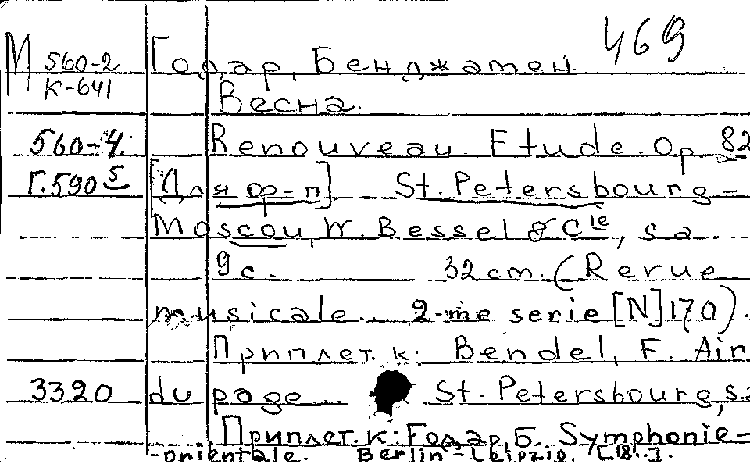 469
М 560-2 Годар, Бенджамен
К-641 Весна.
560-4. Renouveau. Etude. Op 82
Г.590 5 [Для ф-п] St. Petersbourg-
Moscou, W. Bessel & Cie, s a.
9 с. 32 cm. (Revue
musicale. 2-me serie [N] 170).
Приплет. к: Bendel, F. Air
3320 du page St. Petersbourg, s.a
Приплет. к: Годар, Б. Symphonie-
-orientale. Berlin-Leipzig. [18..].